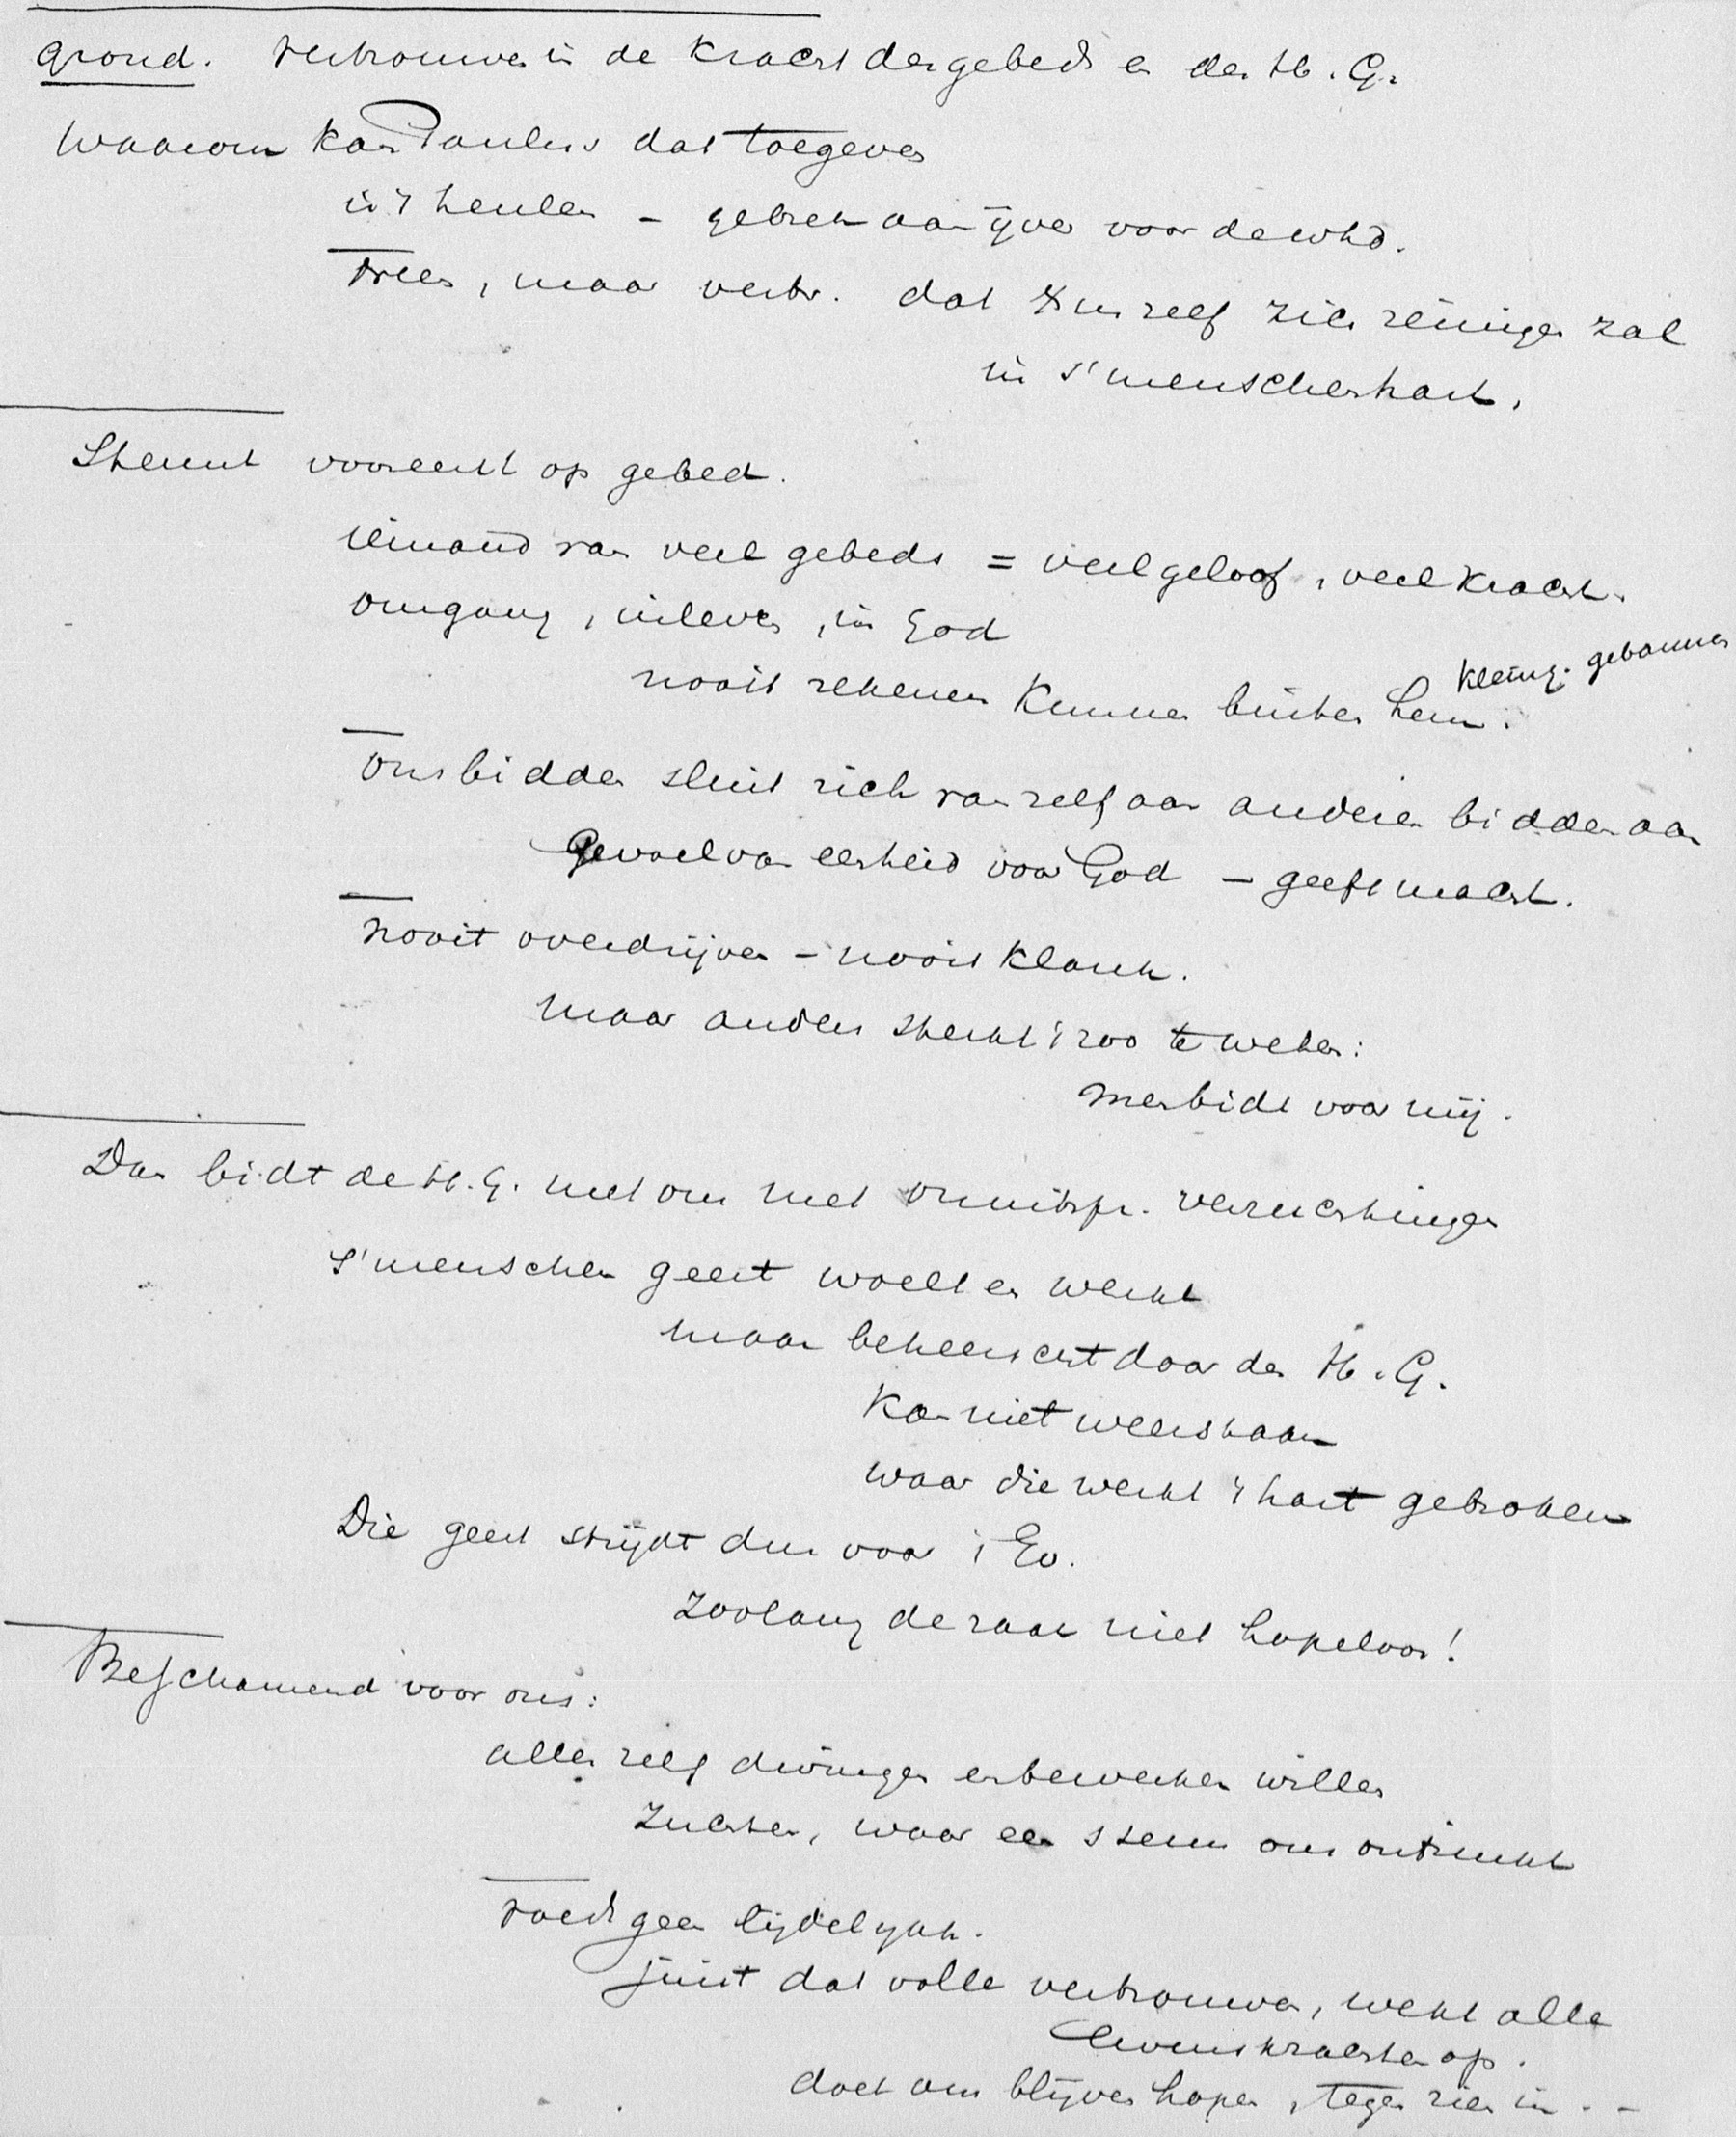 Grond. Vertrouwen in de kracht des gebeds en des H. G.
Waarom kan Paulus dat toegeven
is 't heulen - gebrek aan ijver voor de whd.
Vrees, maar vertr. dat Xus zelf zich reinigen zal
in s'menschenhart.
Steunt vooreerst op gebed.
iemand van veel gebeds = veel geloof, veel kracht.
omgang, inleven, in God
nooit rekenen kunnen buiten hem. kleing. gebannen
Ons bidden sluit zich van zelf aan anderer bidden aan
Gevoel van eenheid voor God - geeft macht.
Nooit overdrijven - nooit klank.
maar anders sterkt 't zoo te weten:
Men bidt voor mij.
Dan bidt de H. G. met ons met onuitspr. verzuchtingen
s'menschen geest woelt en werkt
maar beheerscht door den H. G.
Kan niet weerstaan
waar die werkt 't hart gebroken
Die geest strijdt dus voor 't Ev.
Zoolang de zaak niet hopeloos!
Beschamend voor ons:
alles zelf dwingen en bewerken willen
Zuchten, waar een steun ons ontzinkt
Voedt geen lijdelijkh.
juist dat volle vertrouwen, wekt alle
levenskrachten op.
doet ons blijven hopen, tegen zien in - -